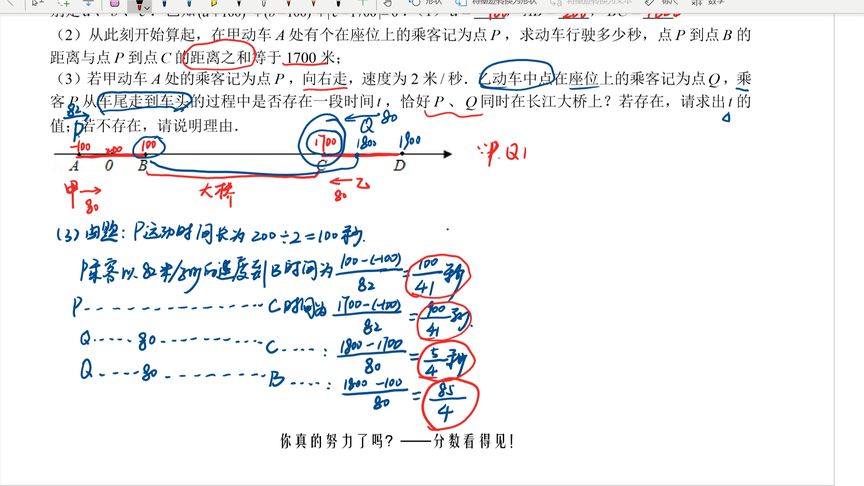 （2）从此刻开始算起，在甲动车 A 处有个在座位上的乘客记为点 P，求动车行驶多少秒，点 P 到点 B 的
距离与点 P 到点 C 的距离之和等于 1700 米；
（3）若甲动车 A 处的乘客记为点 P，向右走，速度为 2 米 / 秒．乙动车中点在座位上的乘客记为点 Q，乘
客 P 从车尾走到车头的过程中是否存在一段时间 t，恰好 P 、 Q 同时在长江大桥上？若存在，请求出 t 的
值；若不存在，请说明理由．
82
P
Q 80
-100 200 100 1700 1800 1900
A 0 B C D
甲 80 大桥 80 乙
∵P.Q1
(3) 由题：P运动时间长为 200÷2=100秒.
P乘客以82米/秒的速度到B时间为 100-(-100)/82 = 100/41 秒
P C时间为 1700-(-100)/82 = 900/41 秒.
Q 80 C : 1800-1700/80 = 5/4 秒
Q 80 B : 1800-100/80 = 85/4
你真的努力了吗？——分数看得见！